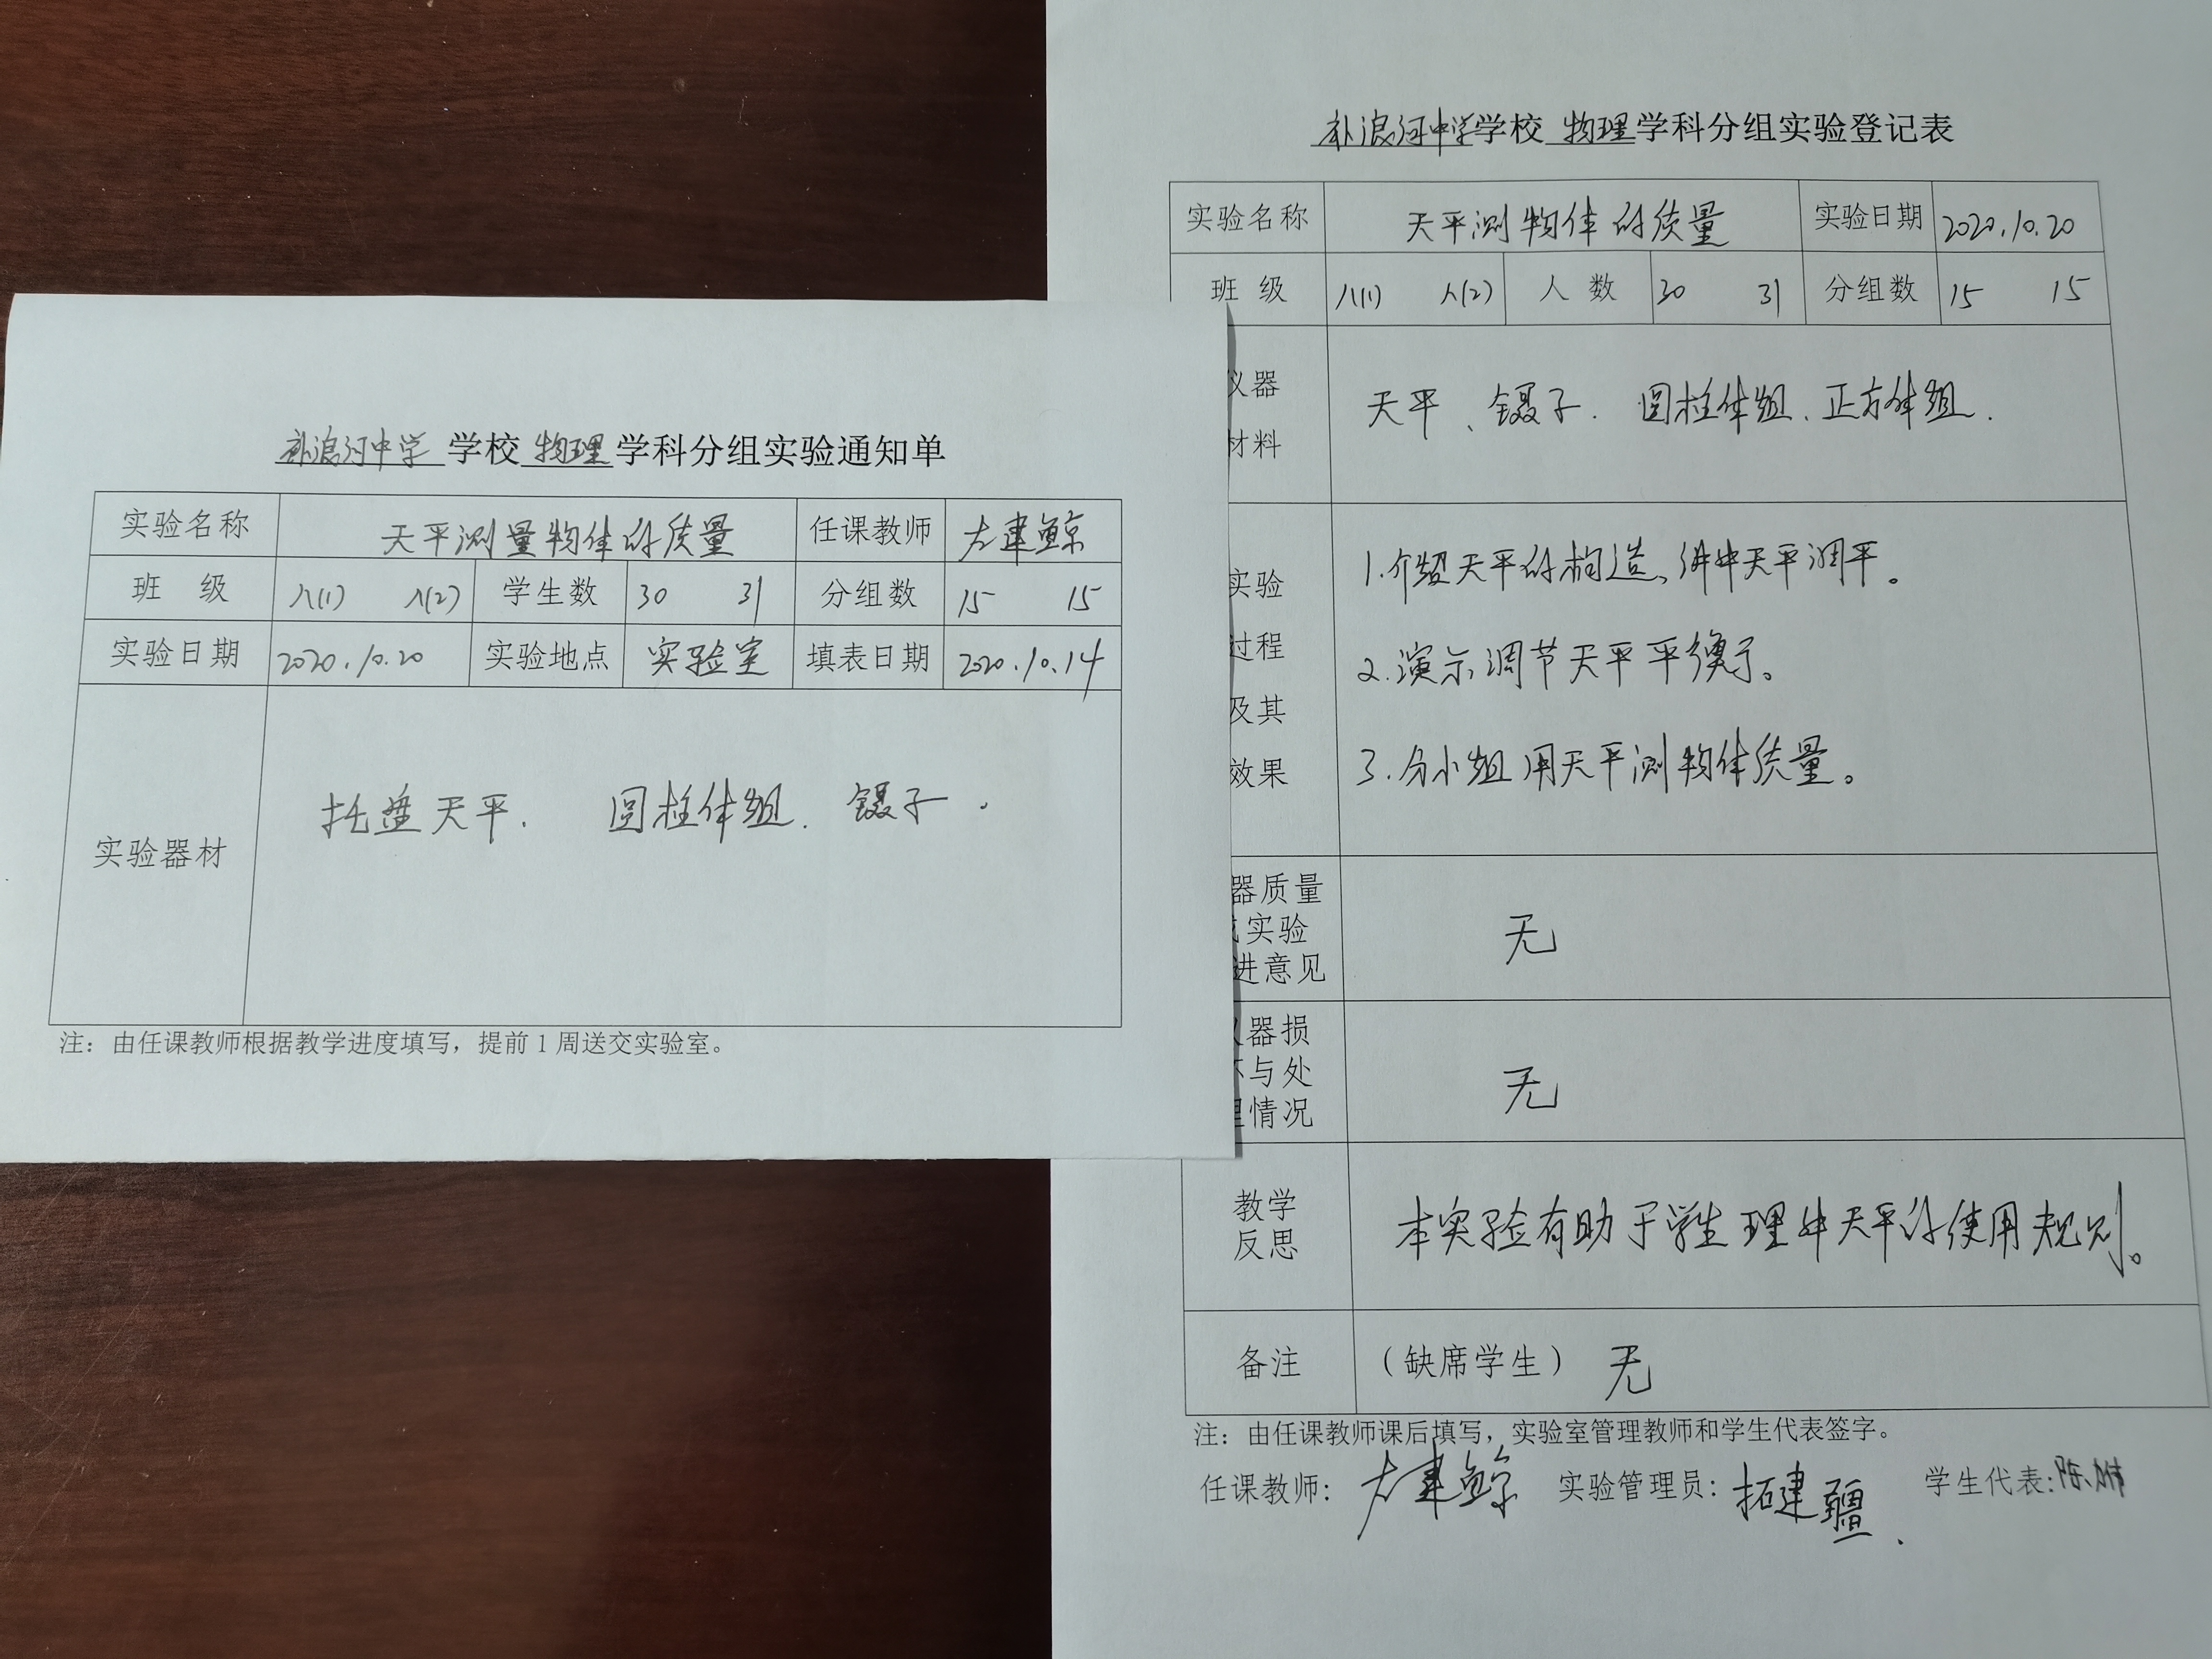 补浪河中学 学校 物理 学科分组实验通知单
实验名称 天平测量物体的质量 任课教师 左建鲸
班 级 八(1) 八(2) 学生数 30 31 分组数 15 15
实验日期 2020.10.20 实验地点 实验室 填表日期 2020.10.14
实验器材 托盘天平. 圆柱体组. 镊子.
注：由任课教师根据教学进度填写，提前1周送交实验室。
补浪河中学学校 物理学科分组实验登记表
实验名称 天平测物体的质量 实验日期 2020.10.20
班 级 八(1) 八(2) 人 数 30 31 分组数 15 15
仪器
材料
天平、镊子. 圆柱体组、正方体组.
实验
过程
及其
效果
1.介绍天平的构造、讲解天平调平。
2.演示调节天平平衡。
3.分小组用天平测物体质量。
器质量
实验
进意见
无
器损
与处
情况
无
教学
反思
本实验有助于学生理解天平的使用规则。
备注 （缺席学生） 无
注：由任课教师课后填写，实验室管理教师和学生代表签字。
任课教师：左建鲸 实验管理员：拓建疆. 学生代表:陈